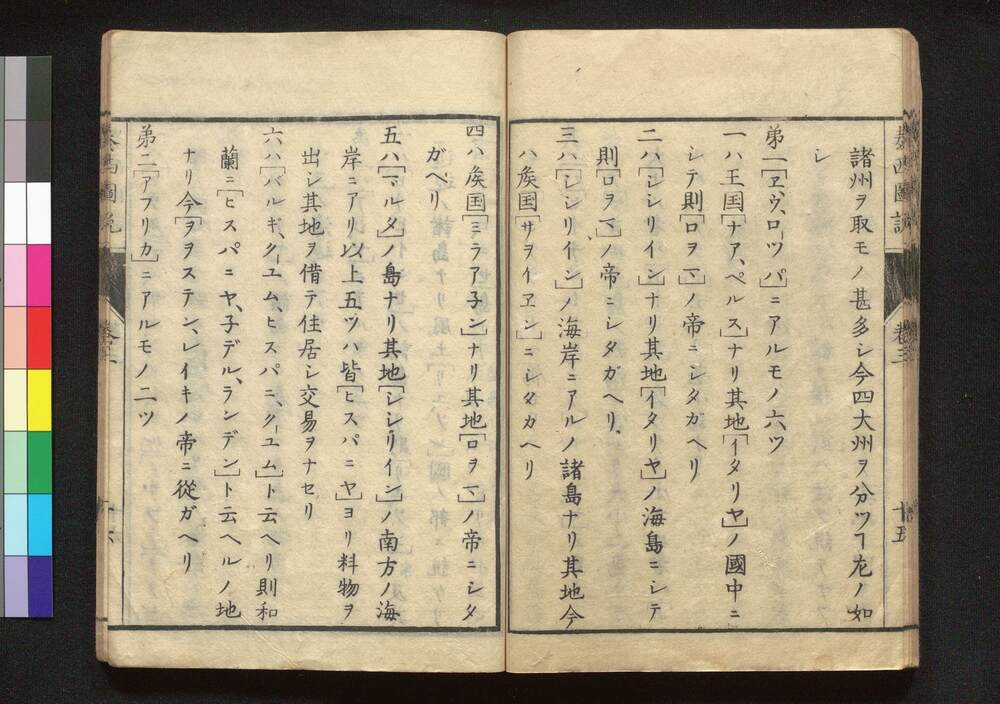 諸州ヲ取モノ甚多シ今四大州ヲ分ツヿ左ノ如
シ
弟一[ヱウ、ローツパ]ニアルモノ六ツ
一ハ王国[ナア、ペルス]ナリ其地[イタリヤ]ノ國中ニ
シテ則[ロヲマ]ノ帝ニシタカヘリ
二ハ[シシリイン]ナリ其地[イタリヤ]ノ海島ニシテ
則[ロヲマ]ノ帝ニシタガヘリ
三ハ[シシリイン]ノ海岸ニアルノ諸島ナリ其地今
ハ矦国[サヲイヱン]ニシタカヘリ
四ハ矦国[ミラア子ン]ナリ其地[ロヲマ]ノ帝ニシタ
ガヘリ
五ハ[マルタ]ノ島ナリ其地[シシリイン]ノ南方ノ海
岸ニアリ以上五ツハ皆[ヒスパニヤ]ヨリ料物ヲ
出シ其地ヲ借テ住居シ交易ヲナセリ
六ハ[バルギ、クーユム、ヒスパニ、クーユム]ト云ヘリ則和
蘭[ヒスパニヤ、子デル、ランデン]ト云ヘルノ地
ナリ今[ヲヲステン、レイキ]ノ帝ニ從ガヘリ
弟二[アフリカ]ニアルモノ二ツ
泰西圖説
卷三
十五
泰西圖説
卷三
十六